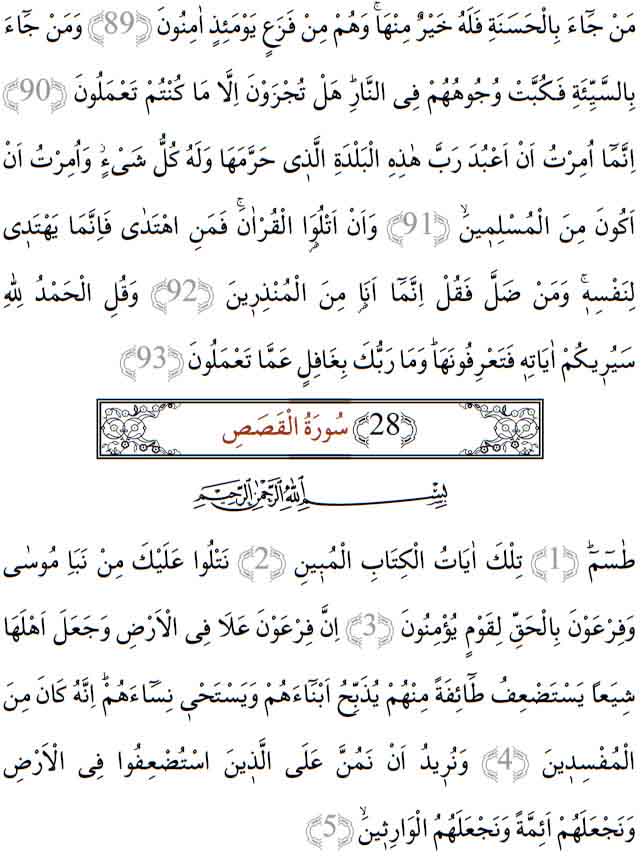 مَنْ جَٓاءَ بِالْحَسَنَةِ فَلَهُ خَيْرٌ مِنْهَاۚ وَهُمْ مِنْ فَزَعٍ يَوْمَئِذٍ اٰمِنُونَ (89) وَمَنْ جَٓاءَ
بِالسَّيِّئَةِ فَكُبَّتْ وُجُوهُهُمْ فِى النَّارِۜ هَلْ تُجْزَوْنَ اِلَّا مَا كُنْتُمْ تَعْمَلُونَ (90)
اِنَّمَٓا اُمِرْتُ اَنْ اَعْبُدَ رَبَّ هٰذِهِ الْبَلْدَةِ الَّذٖى حَرَّمَهَا وَلَهُ كُلُّ شَىْءٍۘ وَاُمِرْتُ اَنْ
اَكُونَ مِنَ الْمُسْلِمٖينَۙ (91) وَاَنْ اَتْلُوَا الْقُرْاٰنَۚ فَمَنِ اهْتَدٰى فَاِنَّمَا يَهْتَدٖى
لِنَفْسِهٖۚ وَمَنْ ضَلَّ فَقُلْ اِنَّمَٓا اَنَا۬ مِنَ الْمُنْذِرٖينَ (92) وَقُلِ الْحَمْدُ لِلّٰهِ
سَيُرٖيكُمْ اٰيَاتِهٖ فَتَعْرِفُونَهَاۜ وَمَا رَبُّكَ بِغَافِلٍ عَمَّا تَعْمَلُونَ (93)
(28) سُورَةُ الْقَصَصِ
بِسْمِ اللّٰهِ الرَّحْمٰنِ الرَّحٖيمِ
طٰسٓمٓۜ (1) تِلْكَ اٰيَاتُ الْكِتَابِ الْمُبٖينِ (2) نَتْلُوا عَلَيْكَ مِنْ نَبَاِ مُوسٰى
وَفِرْعَوْنَ بِالْحَقِّ لِقَوْمٍ يُؤْمِنُونَ (3) اِنَّ فِرْعَوْنَ عَلَا فِى الْاَرْضِ وَجَعَلَ اَهْلَهَا
شِيَعاً يَسْتَضْعِفُ طَٓائِفَةً مِنْهُمْ يُذَبِّحُ اَبْنَٓاءَهُمْ وَيَسْتَحْيٖ نِسَٓاءَهُمْۜ اِنَّهُ كَانَ مِنَ
الْمُفْسِدٖينَ (4) وَنُرٖيدُ اَنْ نَمُنَّ عَلَى الَّذٖينَ اسْتُضْعِفُوا فِى الْاَرْضِ
وَنَجْعَلَهُمْ اَئِمَّةً وَنَجْعَلَهُمُ الْوَارِثٖينَۙ (5)